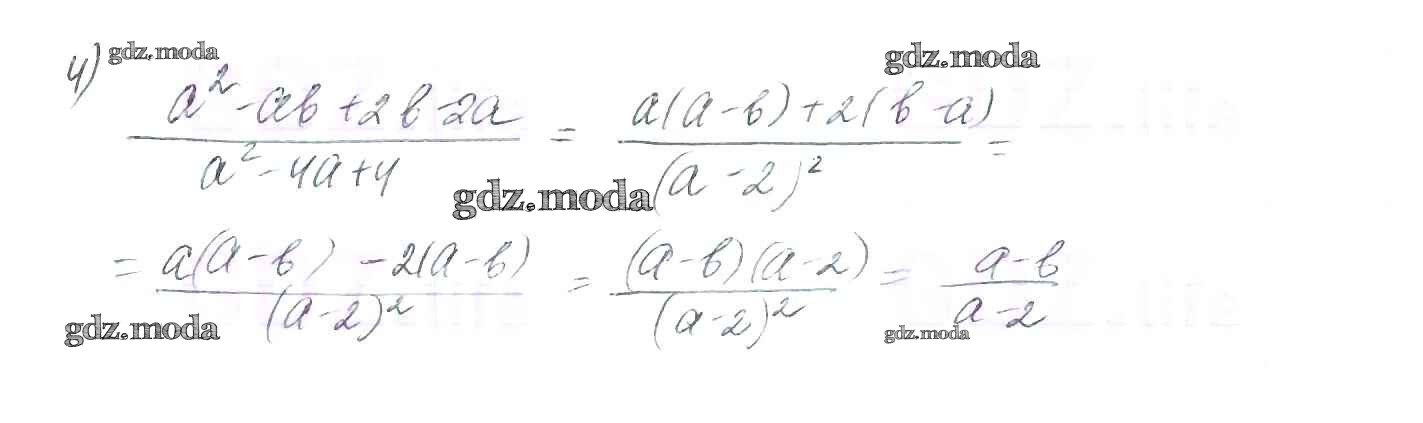 4) gdz.moda gdz.moda
a² - ab + 2b - 2a / a² - 4a + 4 = a(a - b) + 2(b - a) / (a - 2)² =
gdz.moda
= a(a - b) - 2(a - b) / (a - 2)² = (a - b)(a - 2) / (a - 2)² = a - b / a - 2
gdz.moda gdz.moda